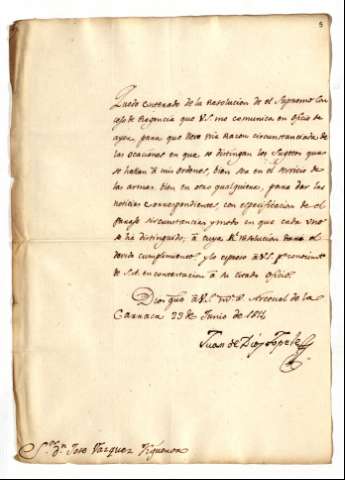 5
Quedo enterado de la Resolucion de el Supremo Con
cejo de Regencia que V.S. me comunica en Oficio de
ayer, para que lleve una razon circunstanciada de
las ocaciones en que se distingan los Sugetos que
se hallan á mis ordenes, bien sea en el servicio de
las armas, bien en otro qualquiera, para dar las
noticias correspondientes, con especificacion de el
parage circunstancias y modo en que cada uno
se ha distinguido, á cuya Rl. resolucion el
devido cumplimiento y lo expreso á V.S. pa.
de S.A. en contestacion á su citado Oficio.
Dios gue. á V.S. ms. as. Arsenal de la
Carraca 23 de Junio de
Juan de Dios Topete
Sor. Dn. Jose Vazquez Figueroa